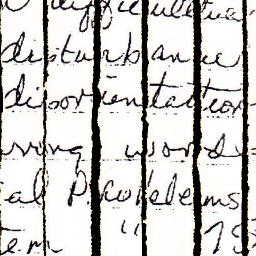 difficulties
disturbance
disorientation
wrong words
al Problems
tem " 75